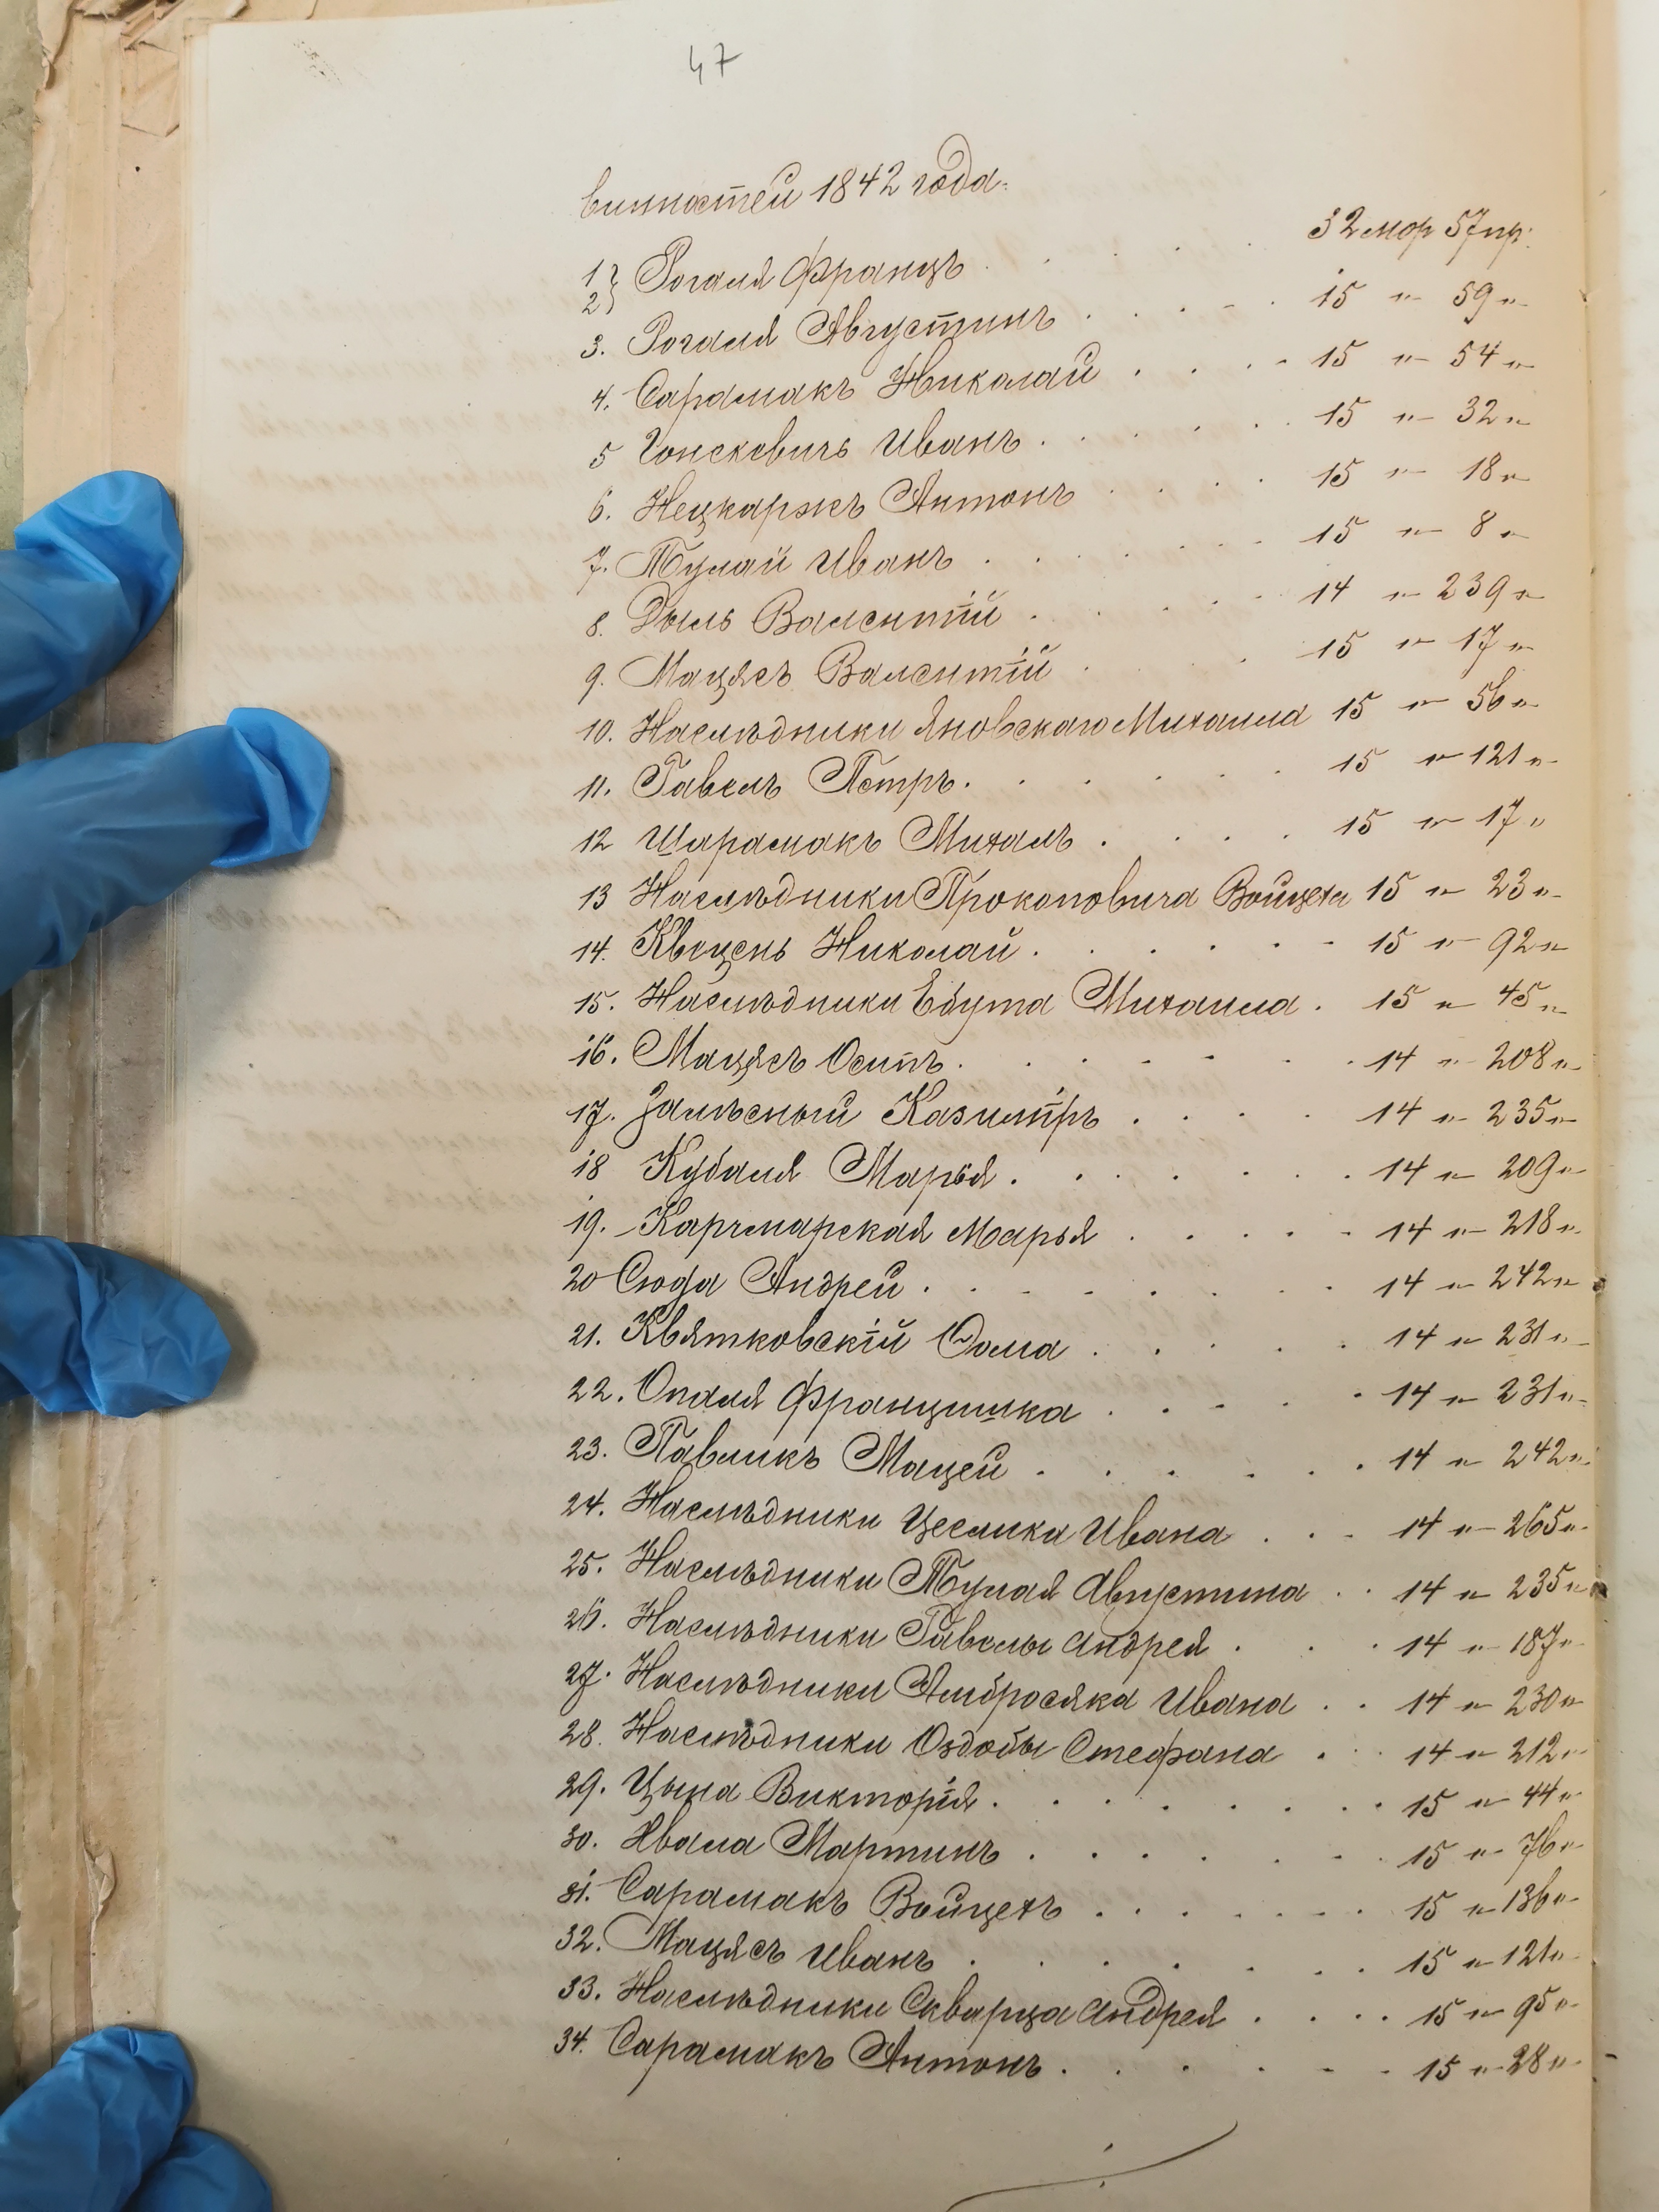 47
винностей 1842 года:
1} 2} Рогаля Францъ . . . . 32 мор 57 пр:
3. Рогаля Августинъ . . . . 15 " 59 "
4. Сарамакъ Николай . . . . 15 " 54 "
5 Гонскевичъ Иванъ . . . . . 15 " 32 "
6. Нецкаржъ Антонъ . . . . 15 " 18 "
7. Тулай Иванъ . . . . . . 15 " 8 "
8. Дыль Валентій . . . . . 14 " 239 "
9. Мацясъ Валентій . . . 15 " 17 "
10. Наслѣдники Яновскаго Михаила 15 " 56 "
11. Гавелъ Петръ . . . . . . 15 " 121 "
12 Шарамакъ Михалъ . . . . 15 " 17 "
13 Наслѣдники Прокоповича Войцеха 15 " 23 "
14. Квецень Николай . . . . . . 15 " 92 "
15. Наслѣдники Ебута Михаила . 15 " 45 "
16. Мацясъ Осипъ . . . . . . . 14 " 208 "
17. Залѣсный Казиміръ . . . . 14 " 235 "
18 Кубаля Марья . . . . . . 14 " 209 "
19. Карчмарская Марья . . . . . 14 " 218 "
20 Сюда Андрей . . . . . . . . 14 " 242 "
21. Квятковскій Ѳома . . . . . 14 " 231 "
22. Опаля Францишка . . . . . 14 " 231 "
23. Павликъ Мацей . . . . . . . 14 " 242 "
24. Наслѣдники Цеслика Ивана . . . 14 " 265 "
25. Наслѣдники Тулая Августина . . 14 " 235 "
26. Наслѣдники Гавелы Андрея . . . 14 " 187 "
27. Наслѣдники Амбросяка Ивана . . 14 " 230 "
28. Наслѣдники Оздобы Стефана . . . 14 " 212 "
29. Цына Викторія . . . . . . . . 15 " 44 "
30. Хвала Мартинъ . . . . . . . 15 " 76 "
31. Сарамакъ Войцехъ . . . . . . . 15 " 136 "
32. Мацясъ Иванъ . . . . . . . . 15 " 121 "
33. Наслѣдники Скварца Андрея . . . . 15 " 95 "
34. Сарамакъ Антонъ . . . . . . . 15 " 28 "